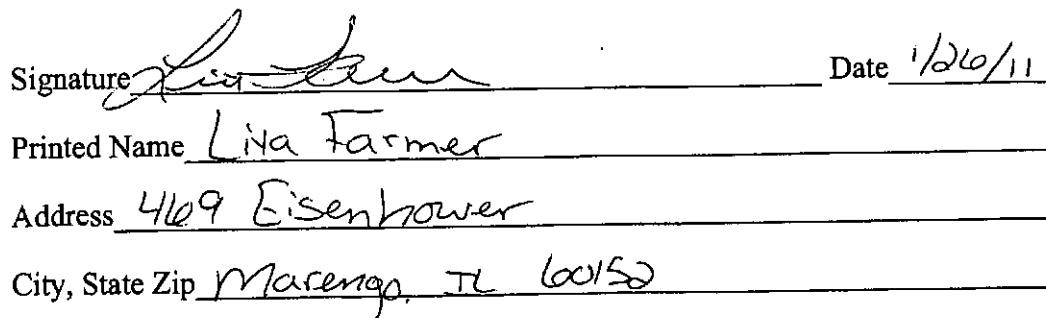 Signature Date 1/26/11
Printed Name Liya Farmer
Address 469 Eisenhower
City, State Zip Marengo, IL 60152